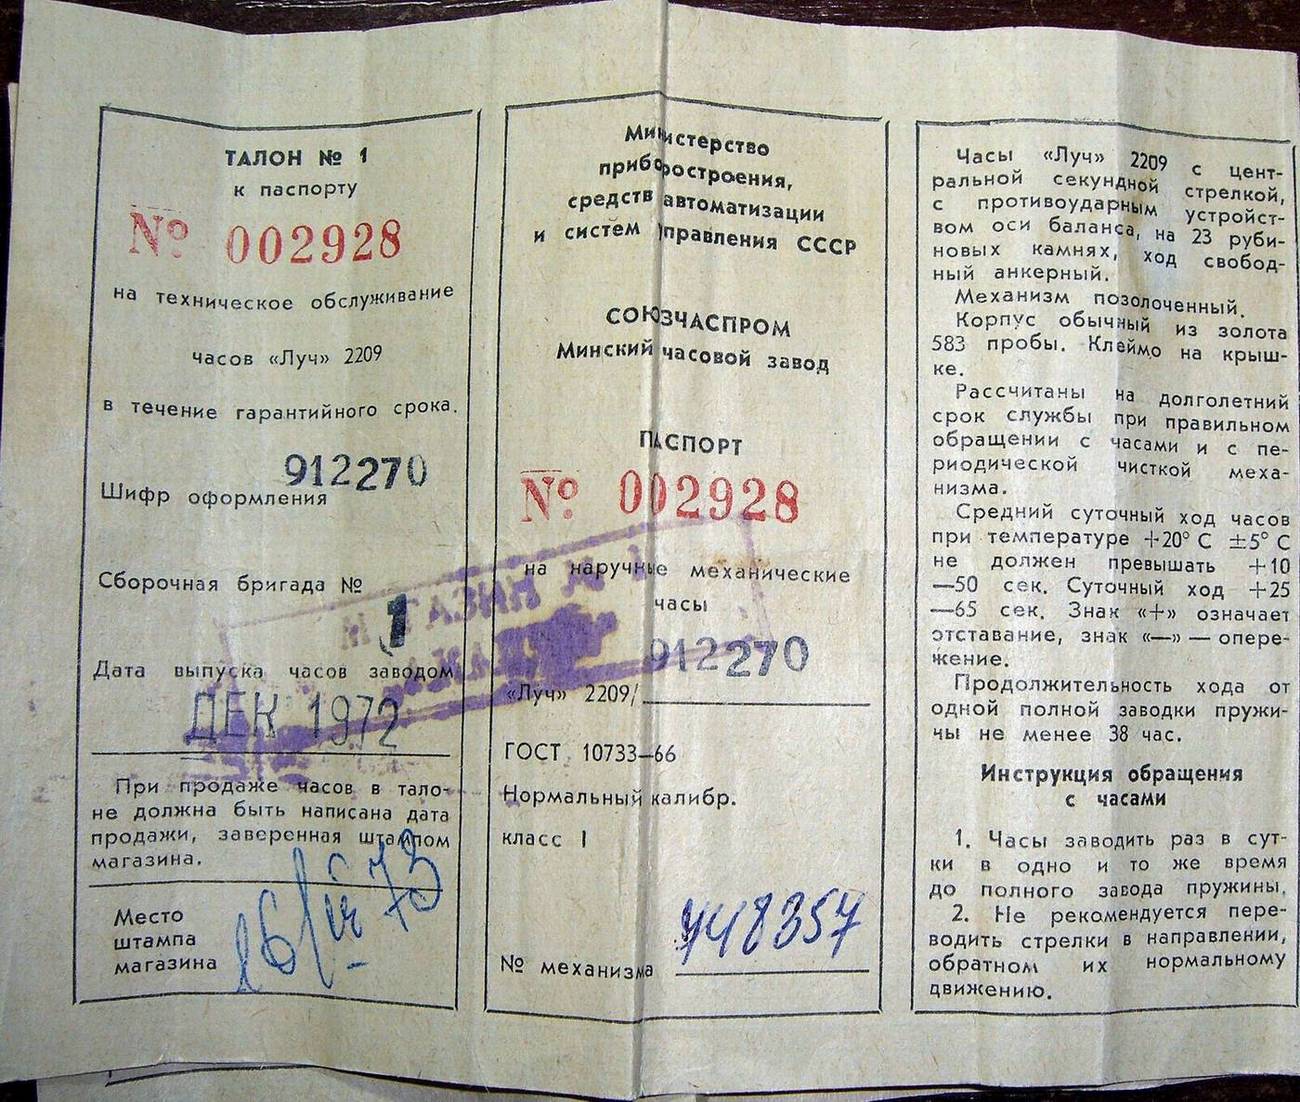 ТАЛОН № 1
к паспорту
№ 002928
на техническое обслуживание
часов «Луч» 2209
в течение гарантийного срока.
912270
Шифр оформления
Сборочная бригада №
1
Дата выпуска часов заводом
ДЕК 1972
При продаже часов в тало-
не должна быть написана дата
продажи, заверенная штампом
магазина.
Место
штампа
магазина
Министерство
приборостроения,
средств автоматизации
и систем управления СССР
СОЮЗЧАСПРОМ
Минский часовой завод
ПАСПОРТ
№ 002928
на наручные механические
часы
912270
«Луч» 2209/
ГОСТ 10733—66
Нормальный калибр.
класс I
448357
№ механизма
Часы «Луч» 2209 с цент-
ральной секундной стрелкой,
с противоударным устройст-
вом оси баланса, на 23 руби-
новых камнях, ход свобод-
ный анкерный.
Механизм позолоченный.
Корпус обычный из золота
583 пробы. Клеймо на крыш-
ке.
Рассчитаны на долголетний
срок службы при правильном
обращении с часами и с пе-
риодической чисткой меха-
низма.
Средний суточный ход часов
при температуре +20° С ±5° С
не должен превышать +10
—50 сек. Суточный ход +25
—65 сек. Знак «+» означает
отставание, знак «—» — опере-
жение.
Продолжительность хода от
одной полной заводки пружи-
ны не менее 38 час.
Инструкция обращения
с часами
1. Часы заводить раз в сут-
ки в одно и то же время
до полного завода пружины.
2. Не рекомендуется пере-
водить стрелки в направлении,
обратном их нормальному
движению.